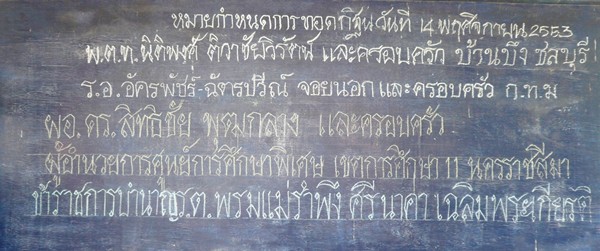 หมายกำหนดการ ทอดกฐินวันที่ 14 พฤศจิกายน 2553
พ.ต.ท. นิติพงศ์ ติวาชัยวิรัตน์ และครอบครัว บ้านบึง ชลบุรี
ร.อ.อัครพัชร์-ฉัตรปวีณ์ จอยนอก และครอบครัว ก.ท.ม
ผอ.ดร.สิทธิชัย พุฒกลาง และครอบครัว
ผู้อำนวยการศูนย์การศึกษาพิเศษ เขตการศึกษา 11 นครราชสีมา
ข้าราชการบำนาญร.ต.พรมแม่รำพึง ศิรินาคา เฉลิมพระเกียรติ